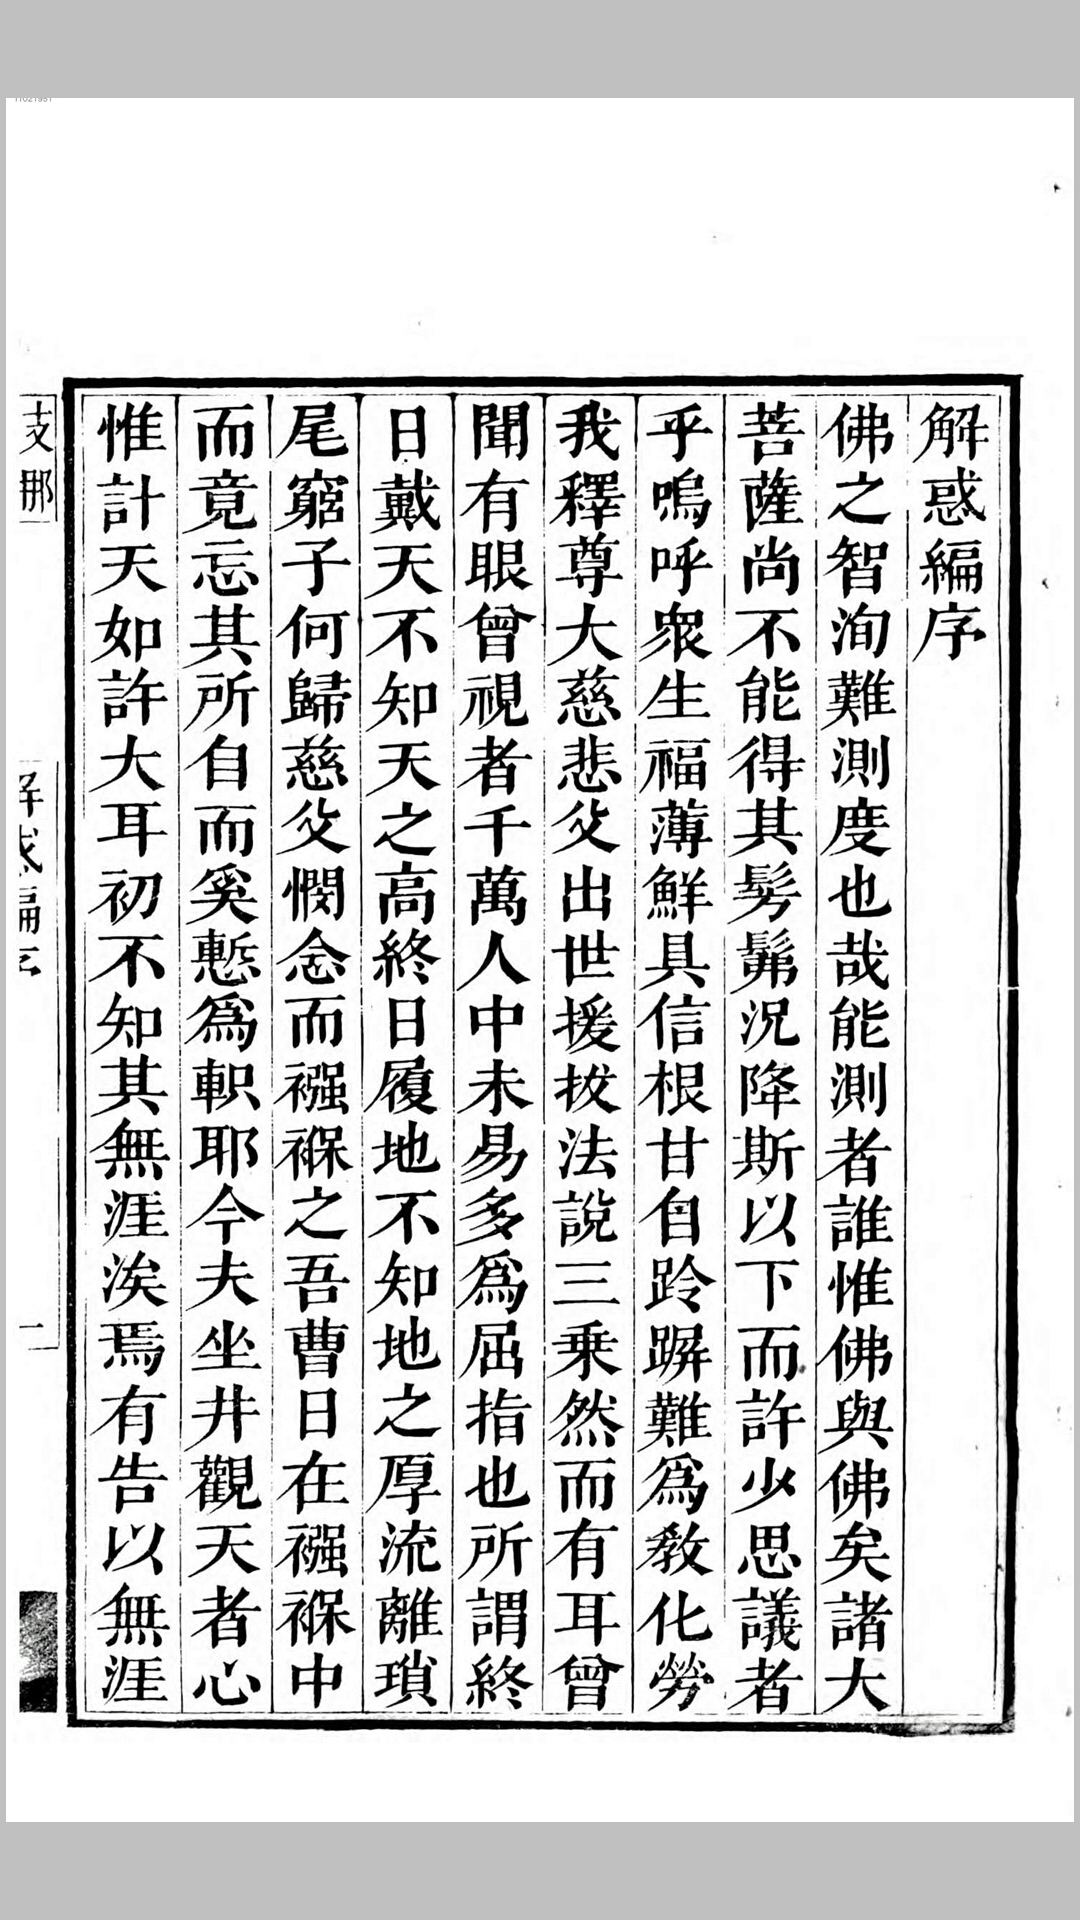 解惑編序
佛之智洵難測度也哉能測者誰惟佛與佛矣諸大
菩薩尚不能得其髣髴況降斯以下而許少思議者
乎嗚呼衆生福薄鮮具信根甘自跉跰難爲教化勞
我釋尊大慈悲父出世援拔法說三乗然而有耳曾
聞有眼曾視者千萬人中未易多爲屈指也所謂終
日戴天不知天之高終日履地不知地之厚流離瑣
尾窮子何歸慈父憫念而襁褓之吾曹日在襁褓中
而竟忘其所自而奚慙爲軹耶今夫坐井觀天者心
惟計天如許大耳初不知其無涯涘焉有告以無涯
支那
解惑編序
一